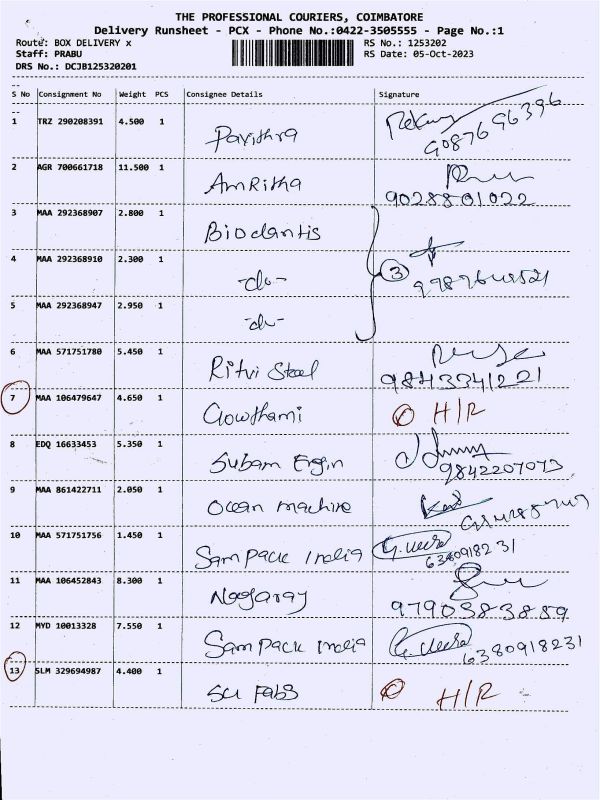 THE PROFESSIONAL COURIERS, COIMBATORE
Delivery Runsheet - PCX - Phone No.:0422-3505555 - Page No.:1
Route: BOX DELIVERY x RS No.: 1253202
Staff: PRABU RS Date: 05-Oct-2023
DRS No.: DCJB125320201
S No Consignment No Weight PCS Consignee Details Signature
1 TRZ 290208391 4.500 1 Pavithra 9087696396
2 AGR 700661718 11.500 1 Amritha
9028801022
3 MAA 292368907 2.800 1 Biodantis
4 MAA 292368910 2.300 1 -do- 3
5 MAA 292368947 2.950 1 -do-
6 MAA 571751780 5.450 1 Ritvi Steel
9843341221
7 MAA 106479647 4.650 1 Gowthami H/R
8 EDQ 16633453 5.350 1 Subam Engin
9842207073
9 MAA 861422711 2.050 1 Ocean machine
10 MAA 571751756 1.450 1 Sampack India 6380918231
11 MAA 106452843 8.300 1 Noogaray
9790383859
12 MYD 10013328 7.550 1 Sampack India 6380918231
13 SLM 329694987 4.400 1 SCI Fabs H/R